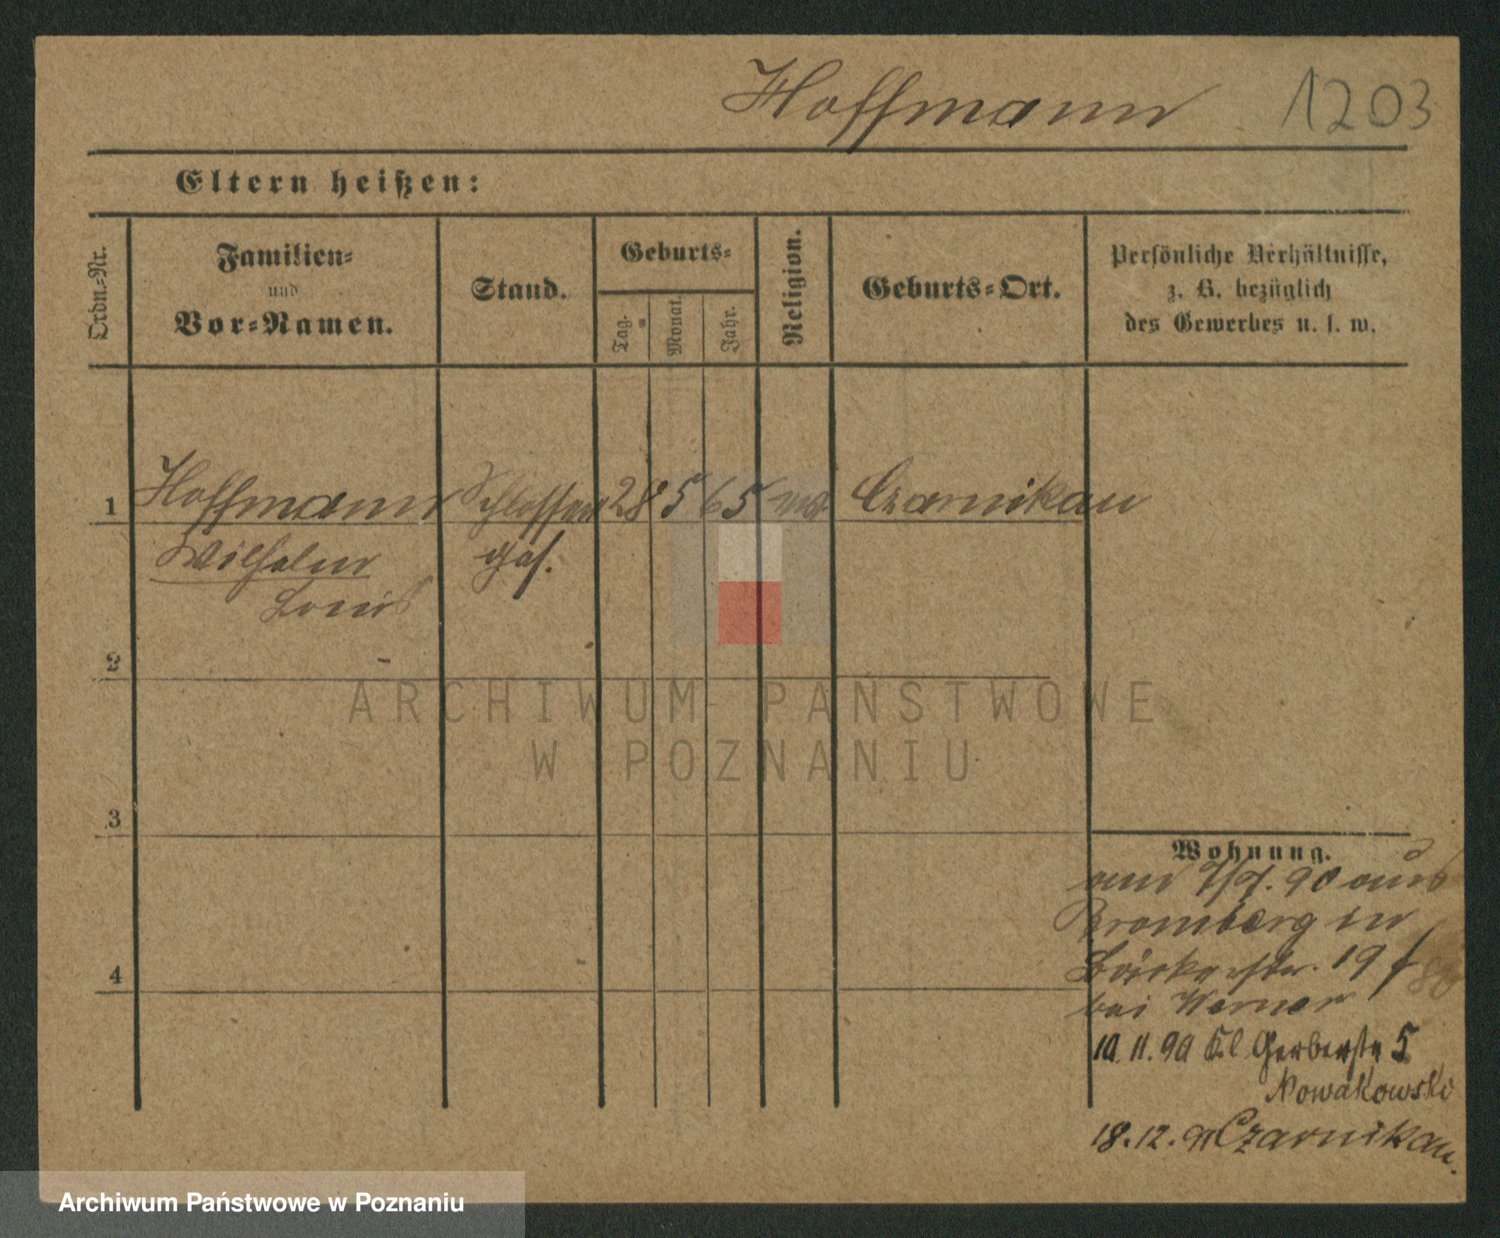 Hoffmann 1203
Eltern heißen:
Ordn.-Nr.
Familien-
und
Vor-Namen.
Stand.
Geburts-
Tag.
Monat.
Jahr.
Religion.
Geburts-Ort.
Persönliche Verhältnisse,
z. B. bezüglich
des Gewerbes u. s. w.
1 Hoffmann Schlosser 28 5 65 ev. Czarnikau
Wilhelm
Louis
2
3
4
Wohnung.
90 aus
Bromberg in
19
bei Werner
10.11.90 Kl Gerberstr 5
Nowakowski
18.12. Czarnikau.
ARCHIWUM PAŃSTWOWE
W POZNANIU
Archiwum Państwowe w Poznaniu